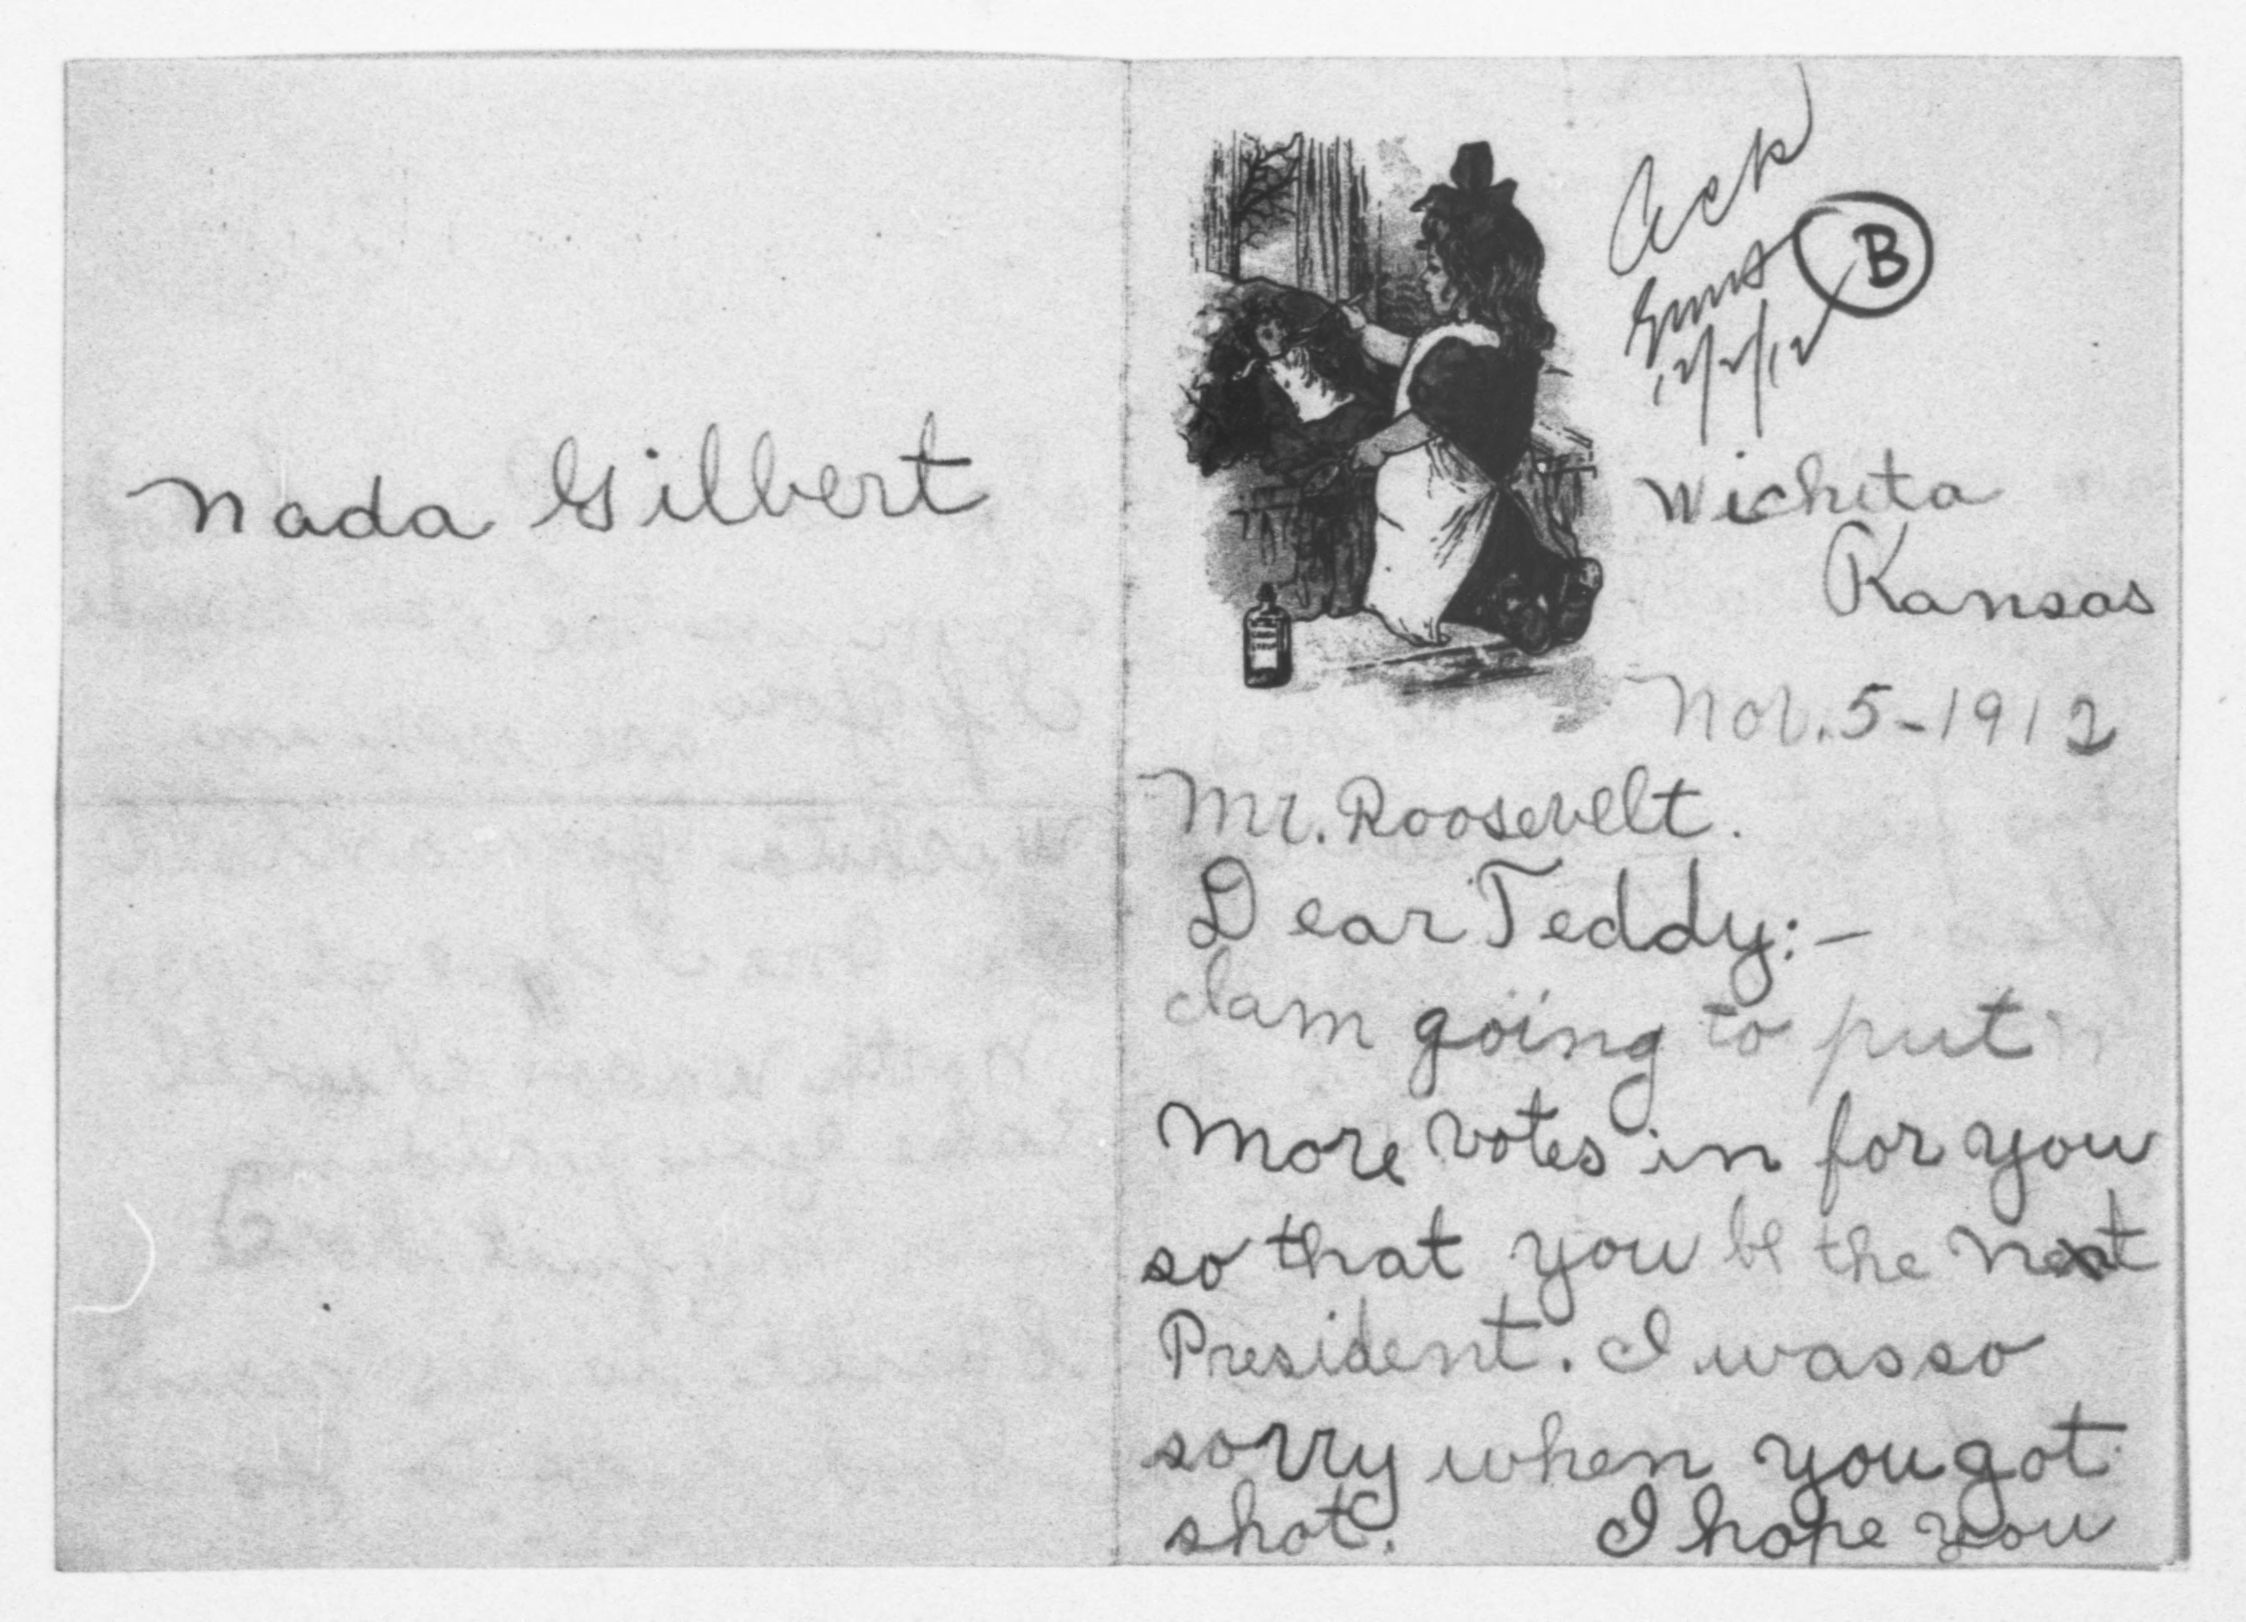 Nada Gilbert
Ack
B
12/2/12
Wichita
Kansas
Nov. 5-1912
Mr. Roosevelt.
Dear Teddy:—
I am going to put
more votes in for you
so that you be the next
President. I was so
sorry when you got
shot. I hope you